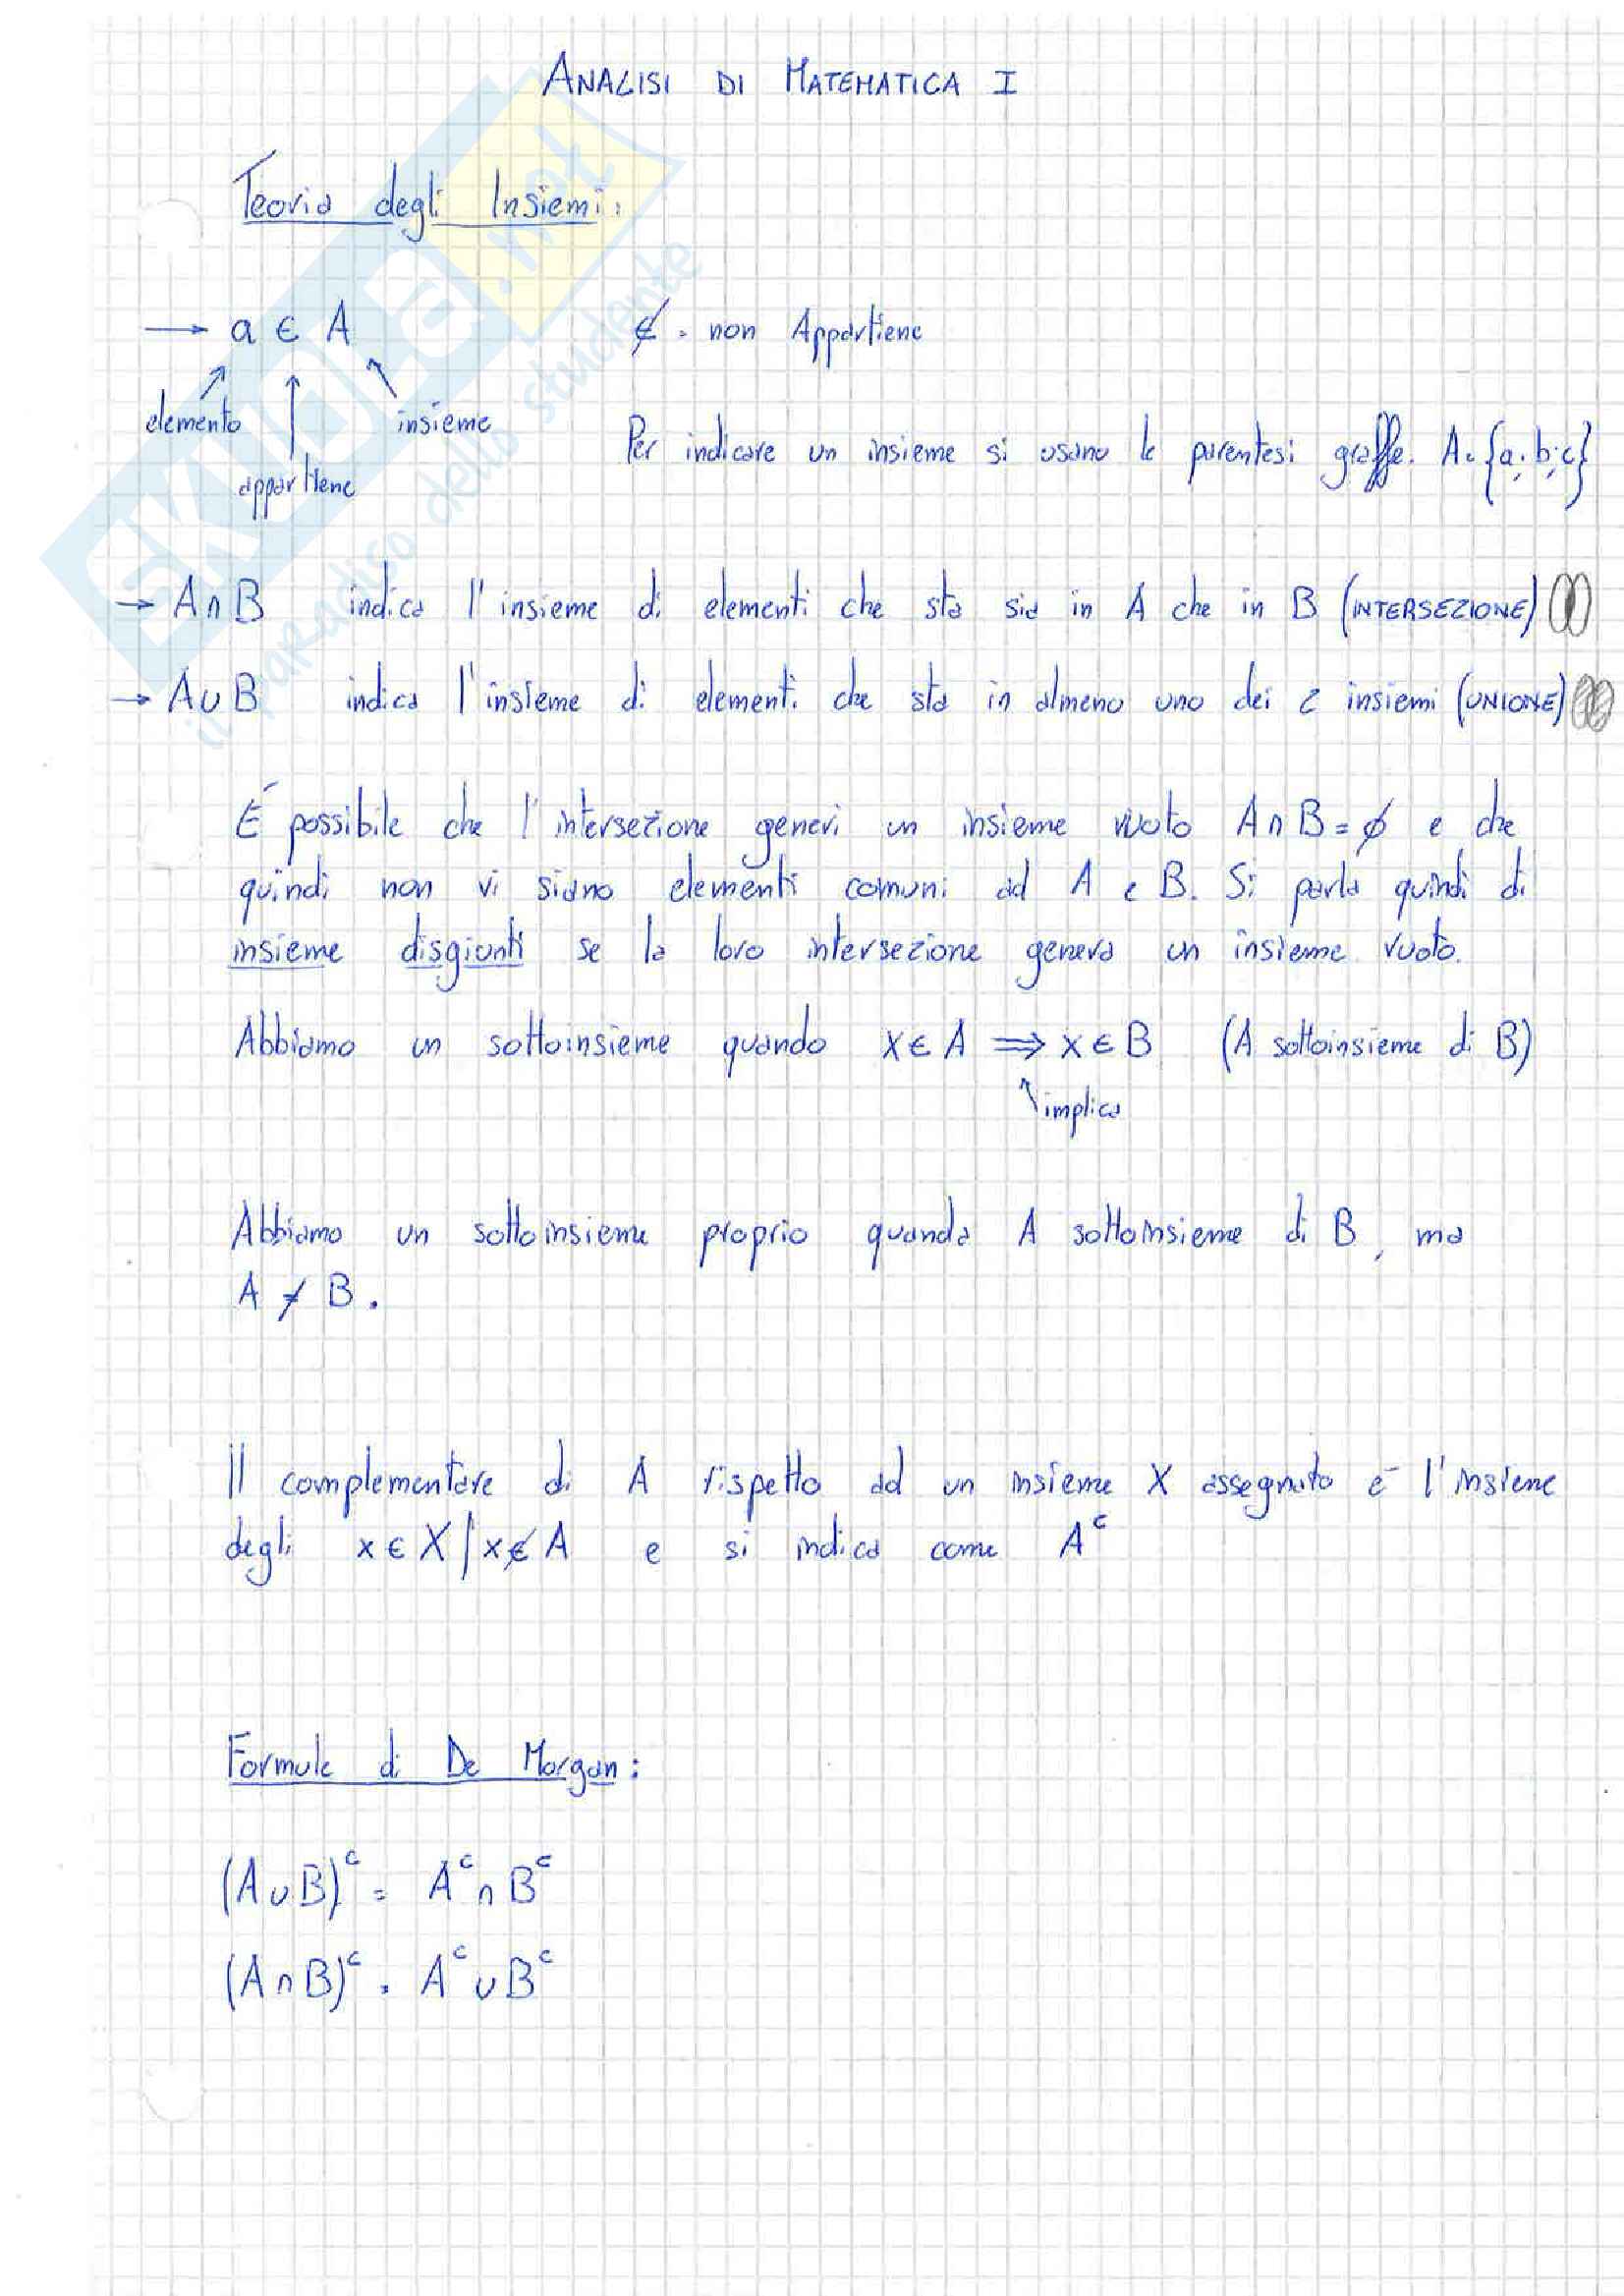 ANALISI DI MATEMATICA I
Teoria degli Insiemi:
→ a ∈ A
∉ = non Appartiene
elemento
insieme
appartiene
Per indicare un insieme si usano le parentesi graffe. A = {a; b; c}
→ A ∩ B indica l'insieme di elementi che sta sia in A che in B (INTERSEZIONE)
→ A ∪ B indica l'insieme di elementi che sta in almeno uno dei 2 insiemi (UNIONE)
É possibile che l'intersezione generi un insieme vuoto A ∩ B = ∅ e che
quindi non vi siano elementi comuni ad A e B. Si parla quindi di
insieme disgiunti se la loro intersezione genera un insieme vuoto.
Abbiamo un sottoinsieme quando x ∈ A ⟹ x ∈ B (A sottoinsieme di B)
implica
Abbiamo un sottoinsieme proprio quando A sottoinsieme di B, ma
A ≠ B.
Il complementare di A rispetto ad un insieme X assegnato é l'insieme
degli x ∈ X | x ∉ A e si indica come Aᶜ
Formule di De Morgan:
(A ∪ B)ᶜ = Aᶜ ∩ Bᶜ
(A ∩ B)ᶜ = Aᶜ ∪ Bᶜ
SKUOLA.net
il paradiso dello studente